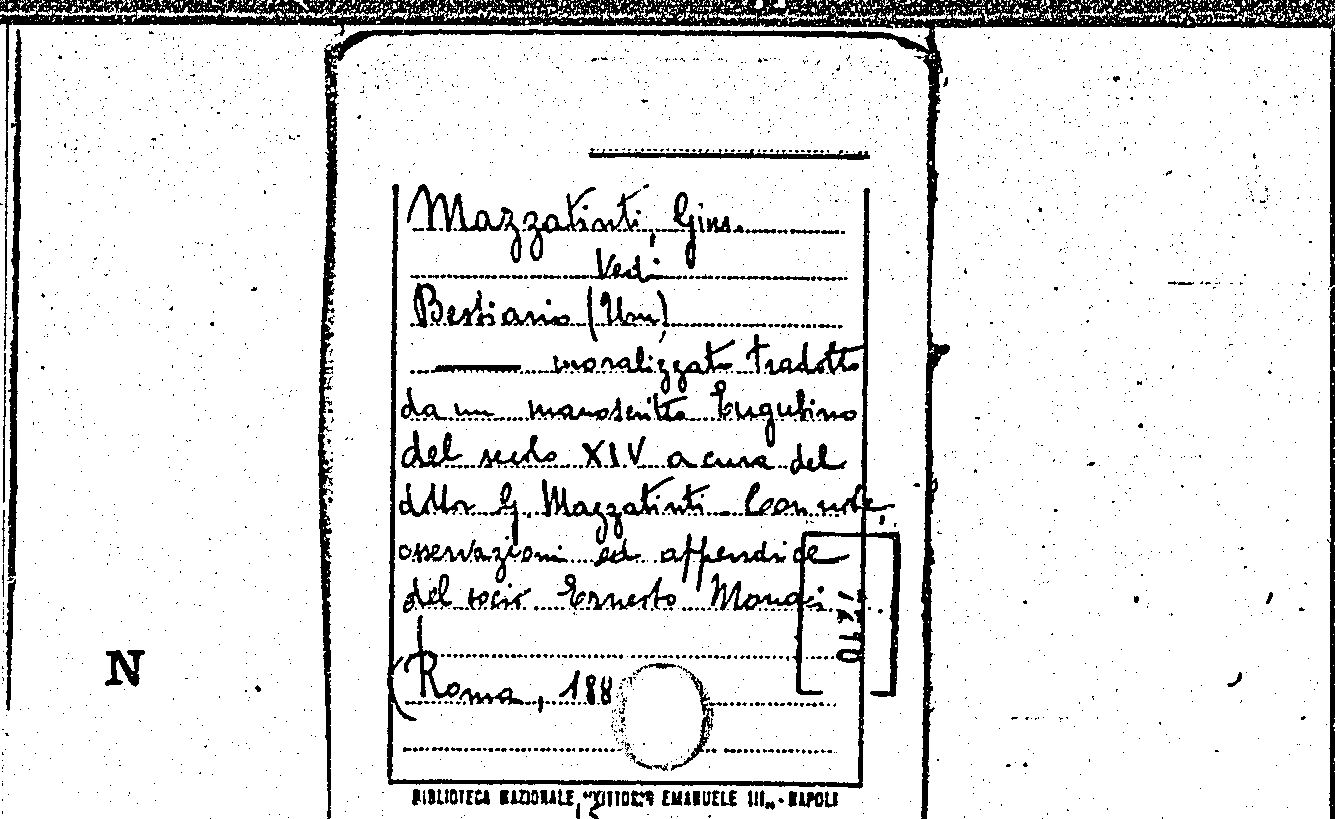 Mazzatinti, Gius.
Vedi
Bestiario (Un)
—— moralizzato tradotto
da un manoscritto Eugubino
del secolo XIV a cura del
dottor G. Mazzatinti. Con note,
osservazioni ed appendice
del socio Ernesto Monaci
(Roma, 188
N
BIBLIOTECA NAZIONALE "VITTORIO EMANUELE III" - NAPOLI